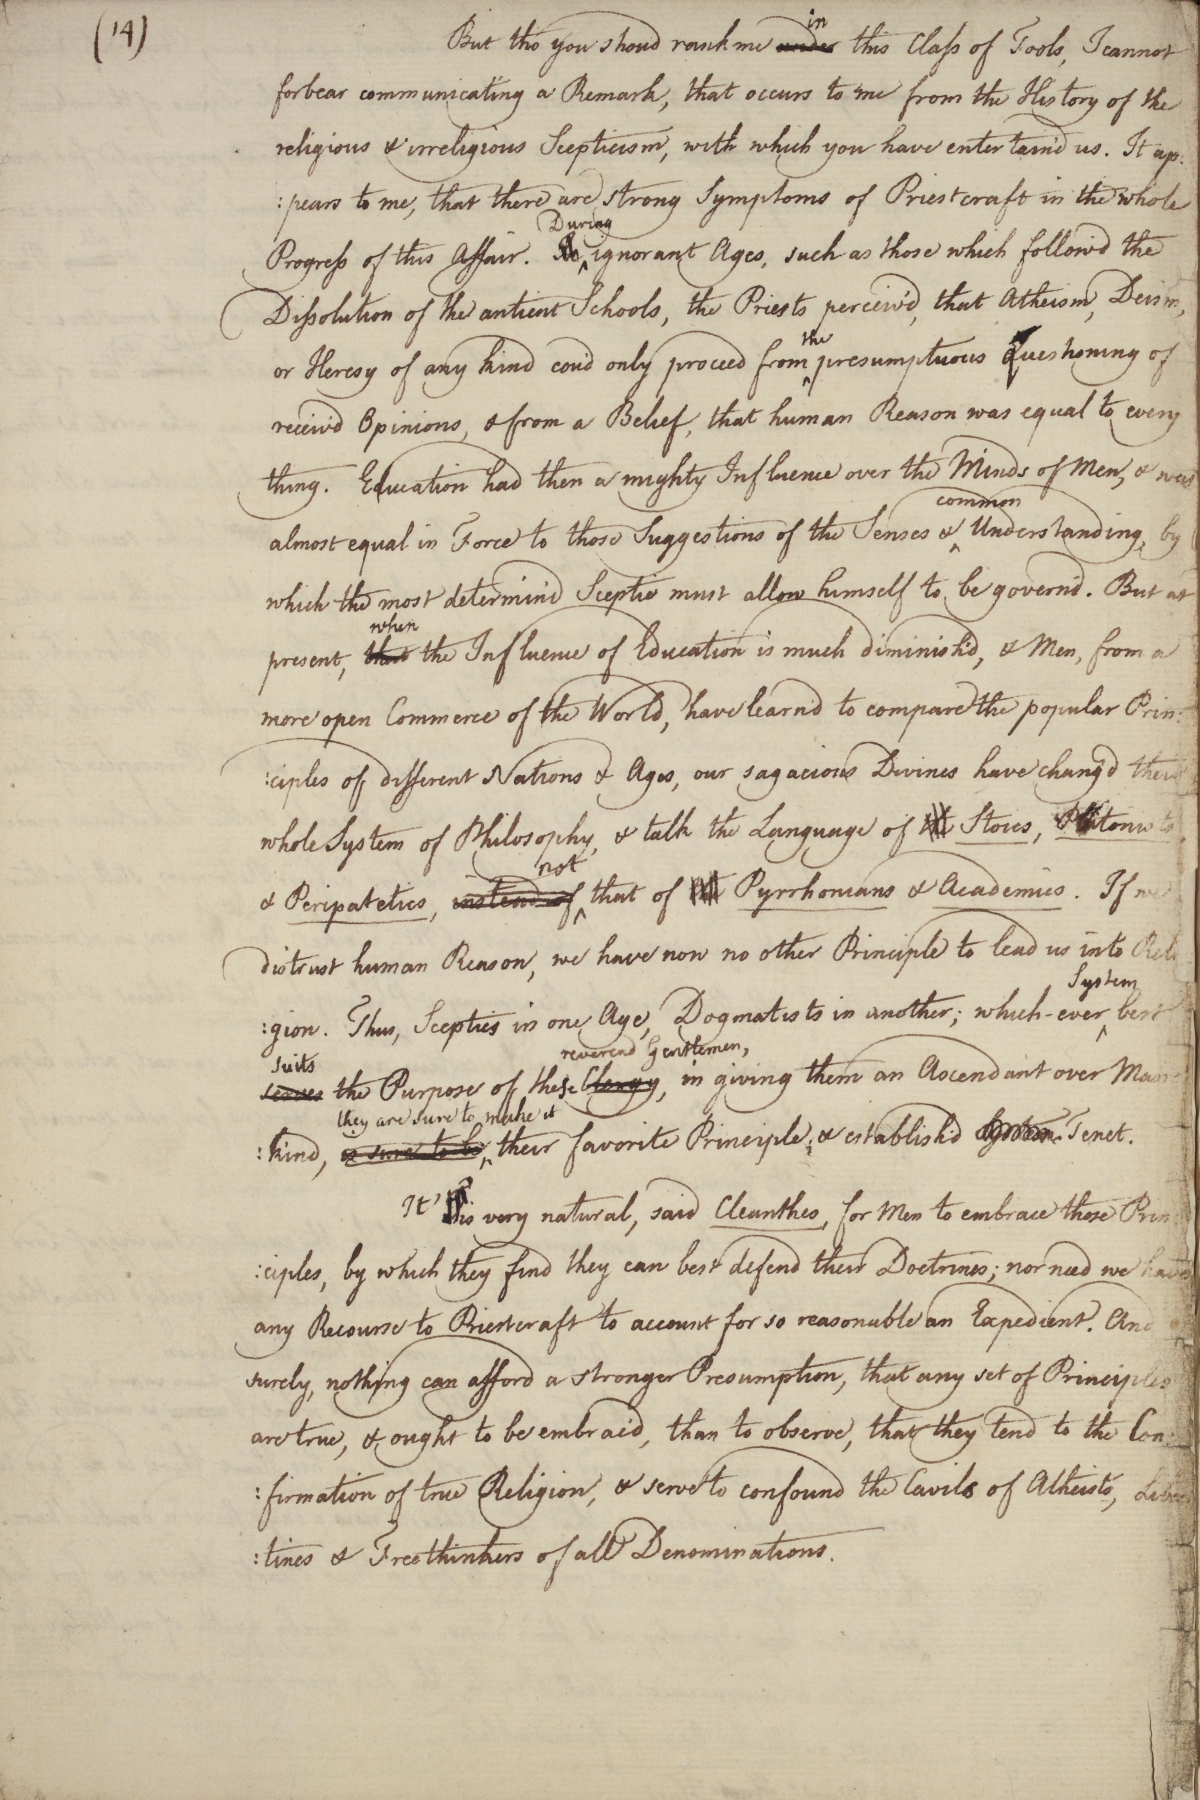 (14)
But tho you shoud rank me under in this Class of Fools, I cannot
forbear communicating a Remark, that occurs to me from the History of the
religious & irreligious Scepticism, with which you have entertaind us. It ap:
:pears to me, that there are strong Symptoms of Priestcraft in the whole
Progress of this Affair. During ignorant Ages, such as those which follow'd the
Dissolution of the antient Schools, the Priests perceiv'd, that Atheism, Deism,
or Heresy of any kind coud only proceed from the presumptuous Questioning of
receiv'd Opinions, & from a Belief, that human Reason was equal to every
thing. Education had then a mighty Influence over the Minds of Men, & was
almost equal in Force to those Suggestions of the Senses & common Understanding, by
which the most determin'd Sceptic must allow himself to be govern'd. But at
present, that when the Influence of Education is much diminish'd, & Men, from a
more open Commerce of the World, have learn'd to compare the popular Prin:
:ciples of different Nations & Ages, our sagacious Divines have chang'd their
whole System of Philosophy, & talk the Language of Stoics, Platonists
& Peripatetics, instead of not that of Pyrrhonians & Academics. If we
distrust human Reason, we have now no other Principle to lead us into Reli
:gion. Thus, Sceptics in one Age, Dogmatists in another; which-ever System best
serves suits the Purpose of these Clergy reverend Gentlemen, in giving them an Ascendant over Man
:kind, is sure to be they are sure to make it their favorite Principle, & establish'd Tenet.
It' is very natural, said Cleanthes, for Men to embrace those Prin
:ciples, by which they find they can best defend their Doctrines; nor need we have
any Recourse to Priestcraft to account for so reasonable an Expedient. And
surely, nothing can afford a stronger Presumption, that any set of Principles
are true, & ought to be embrac'd, than to observe, that they tend to the Con:
:firmation of true Religion, & serve to confound the Cavils of Atheists, Liber
:tines & Freethinkers of all Denominations.